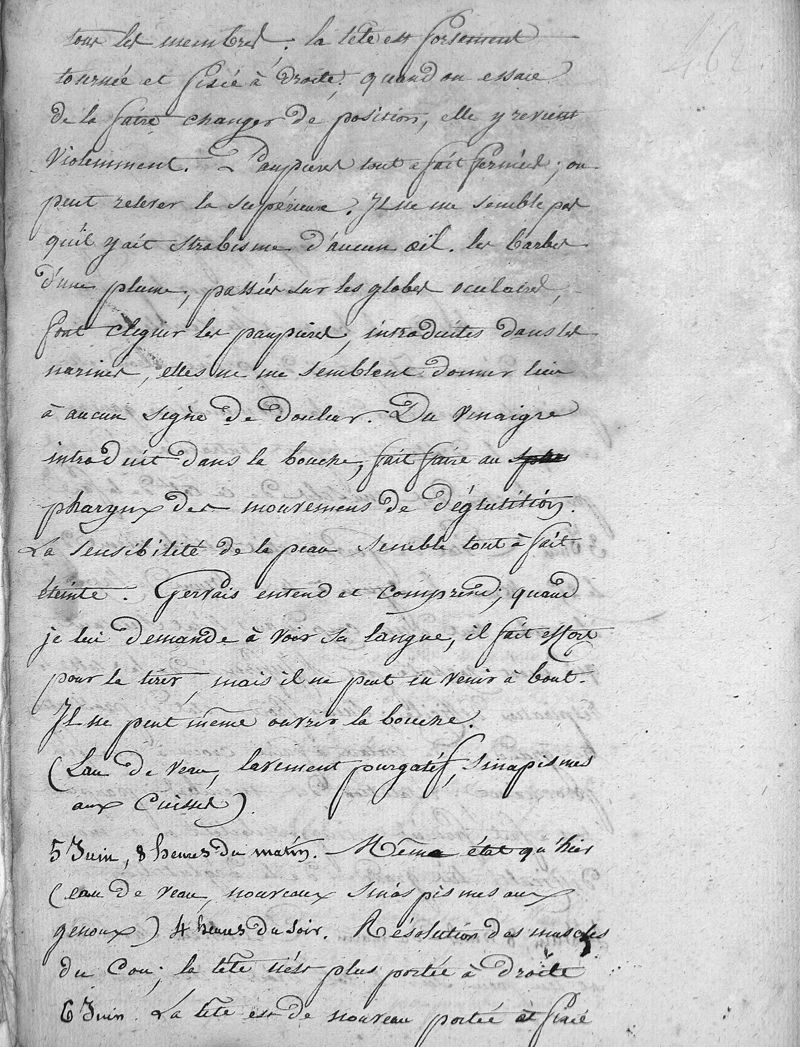 tous les membres. la tête est forsement
tournée et fixée à droite; quand on essaie
de la faire changer de position, elle y revient
violemment. Paupieres tout a fait fermées; on
peut relever la supérieure. Il ne me semble pas
qu'il y ait strabisme d'aucun œil. les barbes
d'une plume, passées sur les globes oculaires,
font cligner les paupieres, introduites dans les
narines, elles ne me semblent donner lieu
à aucun signe de douleur. Du vinaigre
introduit dans la bouche, fait faire au
pharynx des mouvemens de déglutition.
La sensibilité de la peau semble tout à fait
éteinte. Gervais entend et comprend; quand
je lui demande à voir sa langue, il fait effort
pour la tirer, mais il ne peut en venir à bout.
Il ne peut même ouvrir la bouche.
(Eau de veau, lavement purgatif, sinapismes
aux cuisses).
5 Juin, 8 heures du matin. Même état qu'hier
(eau de veau, nouveaux sinapismes aux
genoux) 4 heures du soir. Résolution des muscles
du Cou; la tête n'est plus portée à droite
6 Juin. La tête est de nouveau portée et fixée